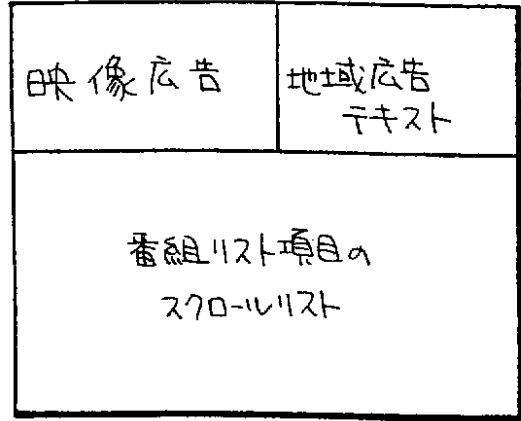 映像広告
地域広告
テキスト
番組リスト項目の
スクロールリスト